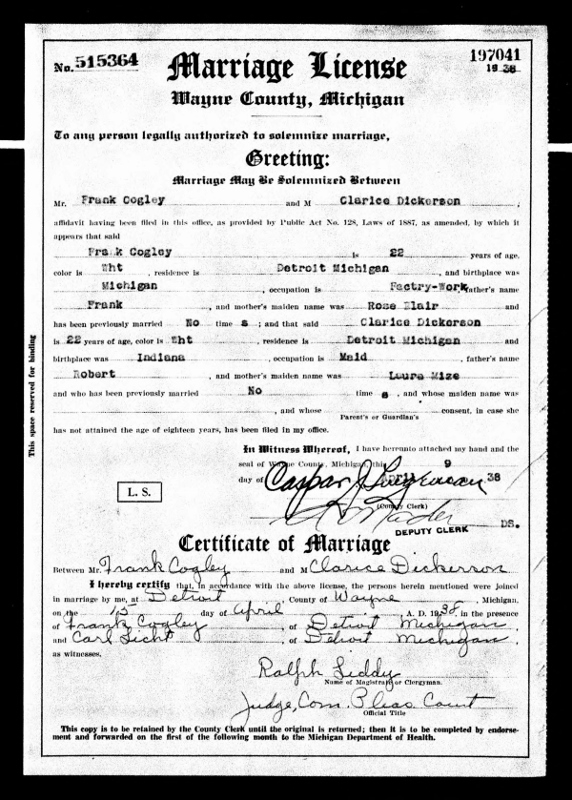 No. 515364
197041
19 38
Marriage License
Wayne County, Michigan
To any person legally authorized to solemnize marriage,
Greeting:
Marriage May Be Solemnized Between
Mr. Frank Cogley and M Clarice Dickerson ;
affidavit having been filed in this office, as provided by Public Act No. 128, Laws of 1887, as amended, by which it
appears that said
Frank Cogley is 22 years of age,
color is Wht , residence is Detroit Michigan , and birthplace was
Michigan , occupation is Factry-Work father's name
Frank , and mother's maiden name was Rose Blair and
has been previously married No time s ; and that said Clarice Dickerson
is 22 years of age, color is Wht , residence is Detroit Michigan and
birthplace was Indiana , occupation is Maid , father's name
Robert , and mother's maiden name was Laura Mize
and who has been previously married No time s , and whose maiden name was
, and whose consent, in case she
Parent's or Guardian's
has not attained the age of eighteen years, has been filed in my office.
This space reserved for binding
In Witness Whereof, I have hereunto attached my hand and the
seal of Wayne County, Michigan, this 9
day of 38
L. S.
Caspar J. Lingeman
(County Clerk)
DEPUTY CLERK DS.
Certificate of Marriage
Between Mr. Frank Cogley and M Clarice Dickerson
I hereby certify that, in accordance with the above license, the persons herein mentioned were joined
in marriage by me, at Detroit , County of Wayne , Michigan,
on the 15 day of April , A. D. 1938, in the presence
of Frank Cogley , of Detroit Michigan,
and Carl Licht , of Detroit Michigan,
as witnesses.
Ralph Liddy
Name of Magistrate or Clergyman.
Judge, Com. Pleas Court
Official Title
This copy is to be retained by the County Clerk until the original is returned; then it is to be completed by endorse-
ment and forwarded on the first of the following month to the Michigan Department of Health.